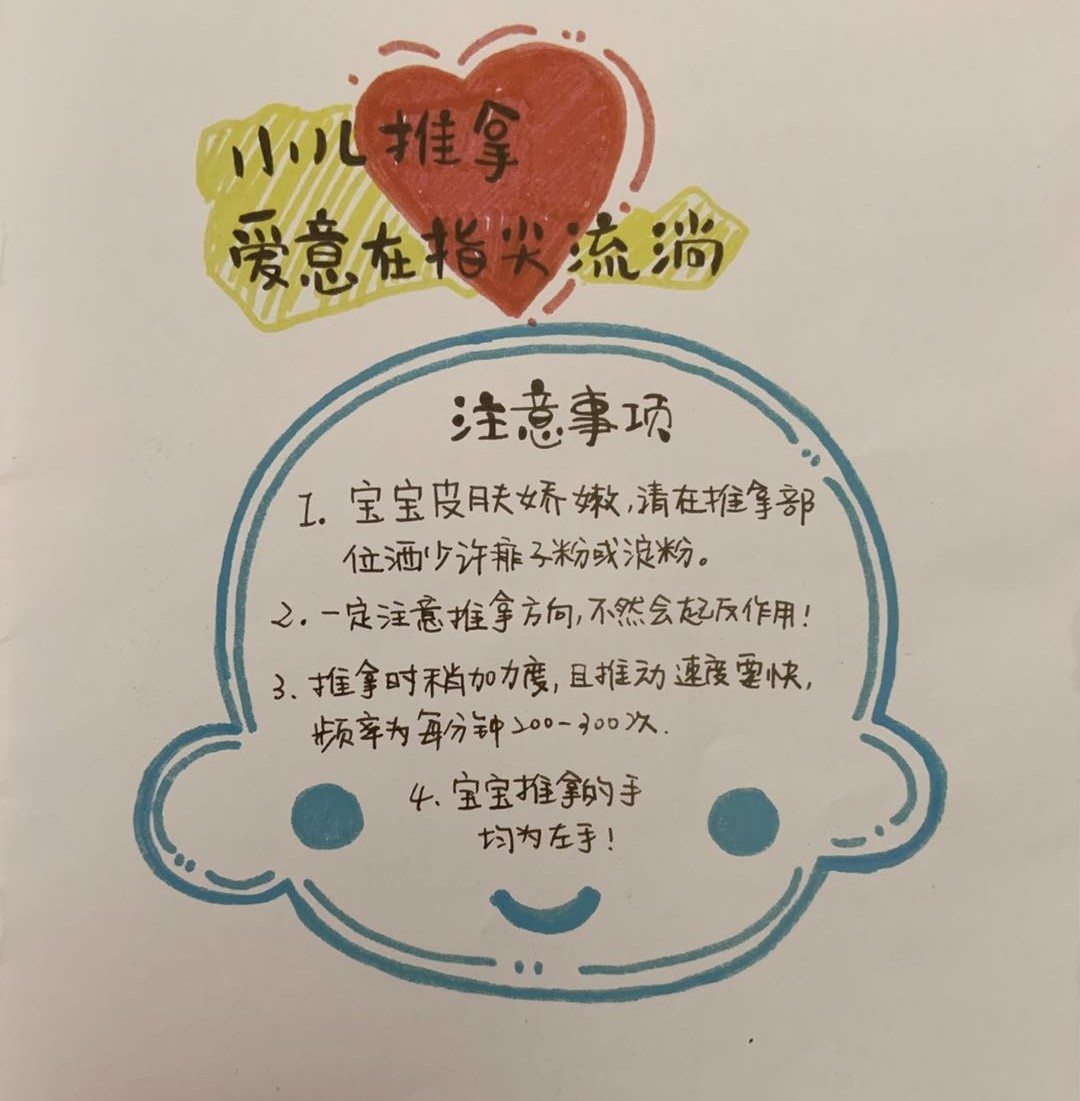 小儿推拿
爱意在指尖流淌
注意事项
1. 宝宝皮肤娇嫩,请在推拿部
位洒少许痱子粉或淀粉。
2. 一定注意推拿方向,不然会起反作用!
3. 推拿时稍加力度,且推动速度要快,
频率为每分钟200-300次.
4、宝宝推拿的手
均为左手!